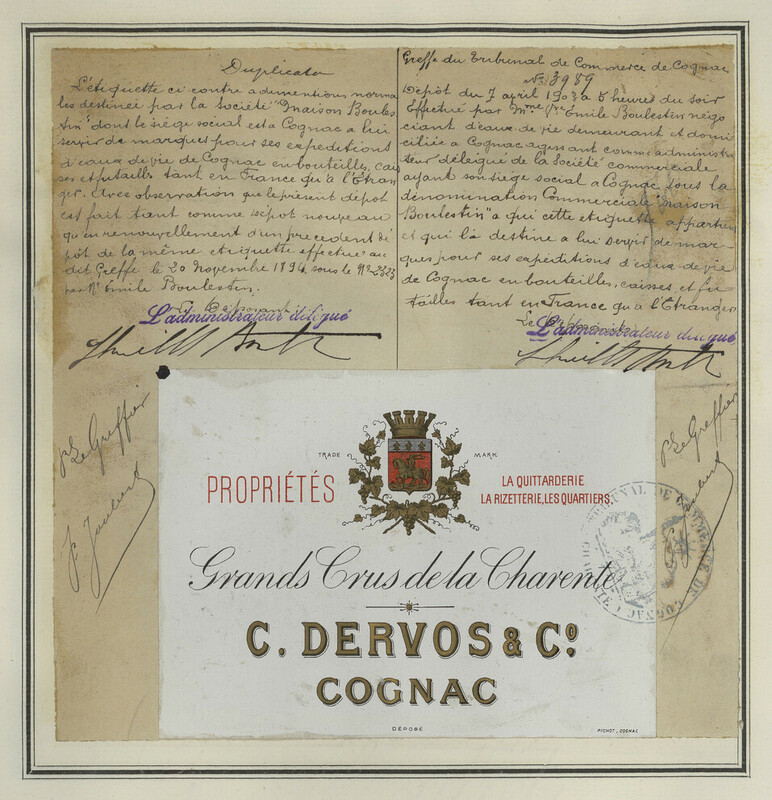 Duplicata
L'étiquette ci contre a dimentions norma
les destinée par la Société "Maison Boules
tin" dont le siège social est à Cognac a lui
servir de marques pour ses expéditions
d'eaux de vie de Cognac en bouteilles, cais
ses et futailles tant en France qu'à l'Etran
ger. Avec observation que le présent dépot
est fait tant comme dépot nouveau
qu'en renouvellement d'un précédent dé
pôt de la même etiquette effectué au
dit Greffe le 20 Novembre 1894 sous le N° 2323
par Mr Emile Boulestin.
Le Déposant
L'administrateur délégué
Greffe du Tribunal de Commerce de Cognac
N° 3989
Dépot du 7 avril 1903 a 5 heures du soir
Effectué par Mme Vve Emile Boulestin négo
ciant d'eaux de vie demeurant et domi
ciliée a Cognac agissant comme administra
teur délégué de la Société commerciale
ayant son siège social a Cognac sous la
dénomination Commerciale "Maison
Boulestin" a qui cette etiquette appartient
et qui la destine a lui servir de mar
ques pour ses expéditions d'eaux de vie
de Cognac en bouteilles, caisses, et fu
tailles tant en France qu'a l'Etranger
Le Déposant
L'administrateur délégué
Le Greffier
Le Greffier
TRADE MARK
PROPRIÉTÉS
LA QUITTARDERIE
LA RIZETTERIE, LES QUARTIERS.
Grands Crus de la Charente
C. DERVOS & Co.
COGNAC
DÉPOSÉ
PICHOT, COGNAC
TRIBUNAL DE COMMERCE DE COGNAC